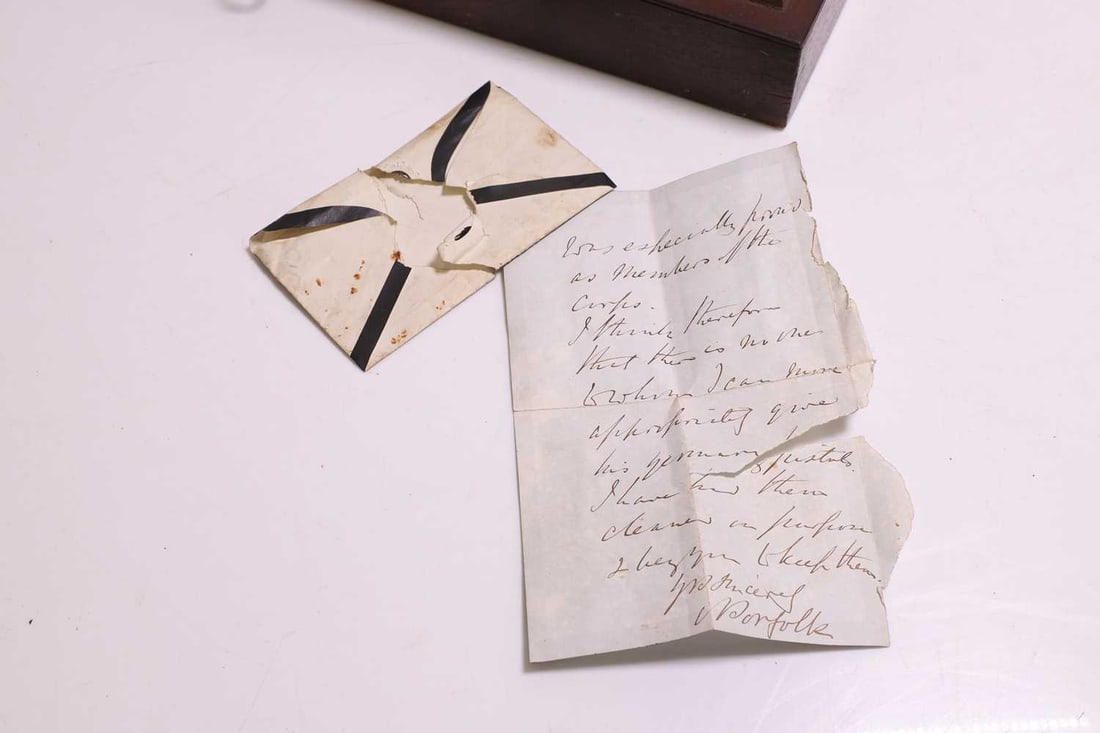 was especially proud
as members of the
corps.
I think therefore
that there is no one
to whom I can more
appropriately give
his german pistols.
I have had them
cleaned on purpose
& beg you to keep them.
Yrs sincerely
Norfolk